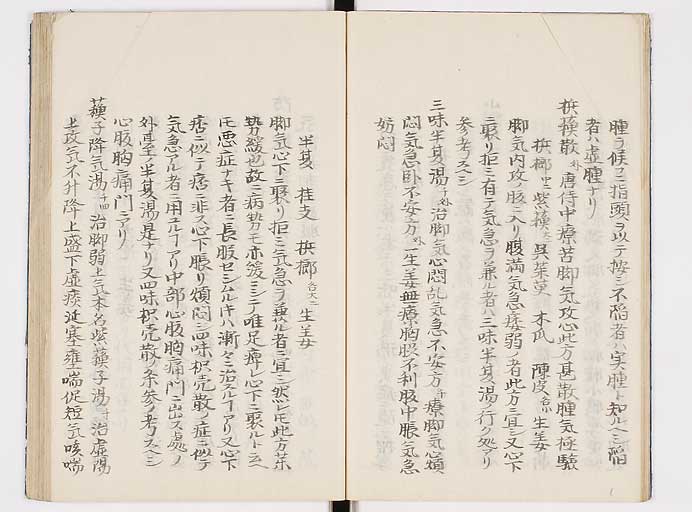 腫ヲ候フニ指頭ヲ以テ按シ不陥者ハ実腫ト知ルヘシ陥
者ハ虚腫ナリ
檳蘓散 外 唐侍中療苦脚気攻心此方甚散腫気極験
檳榔 紫蘓 呉茱萸 木瓜 陳皮 生姜
脚気内攻ノ腹ニ入リ腹満気急痿弱ノ者此方ニ宜シ又心下
ニ聚リ拒ミ有テ気急ヲ兼ル者ハ三味半夏湯ノ行ク処ナリ
参考ヲスヘシ
三味半夏湯 外 治脚気心悶乱気急不安方 療脚気心煩
悶気急卧不安方 外 一生姜 無 療胸脇不利腹中脹気急
妨悶
半夏 桂支 檳榔 各大二 生姜
脚気心下ニ聚リ拒ミ気急ヲ兼ル者ニ宜シ然レ𪜈此方ハ
勢カ緩也故ニ病勢モ亦緩ミニテ唯足痺レ心下ニ聚ルト云ヘ
𪜈悪症ナキ者ニ長服セシムルキハ漸々ニ治スルヿアリ又心下
痞ニ似テ痞ニ非ス心下脹リ煩悶シ四味枳売散ノ症ニ似テ
気急アル者ニ用ユルヿアリ中部心腹胸痛門ニ出ス処ノ
外臺ノ半夏湯是ナリ又四味枳売散ノ条参考スヘシ
心腹胸痛門ニアリ
蘓子降気湯 治脚弱上気本名紫蘓子湯 治虚陽
上攻気不升降上盛下虚痰涎塞壅喘促短気咳喘